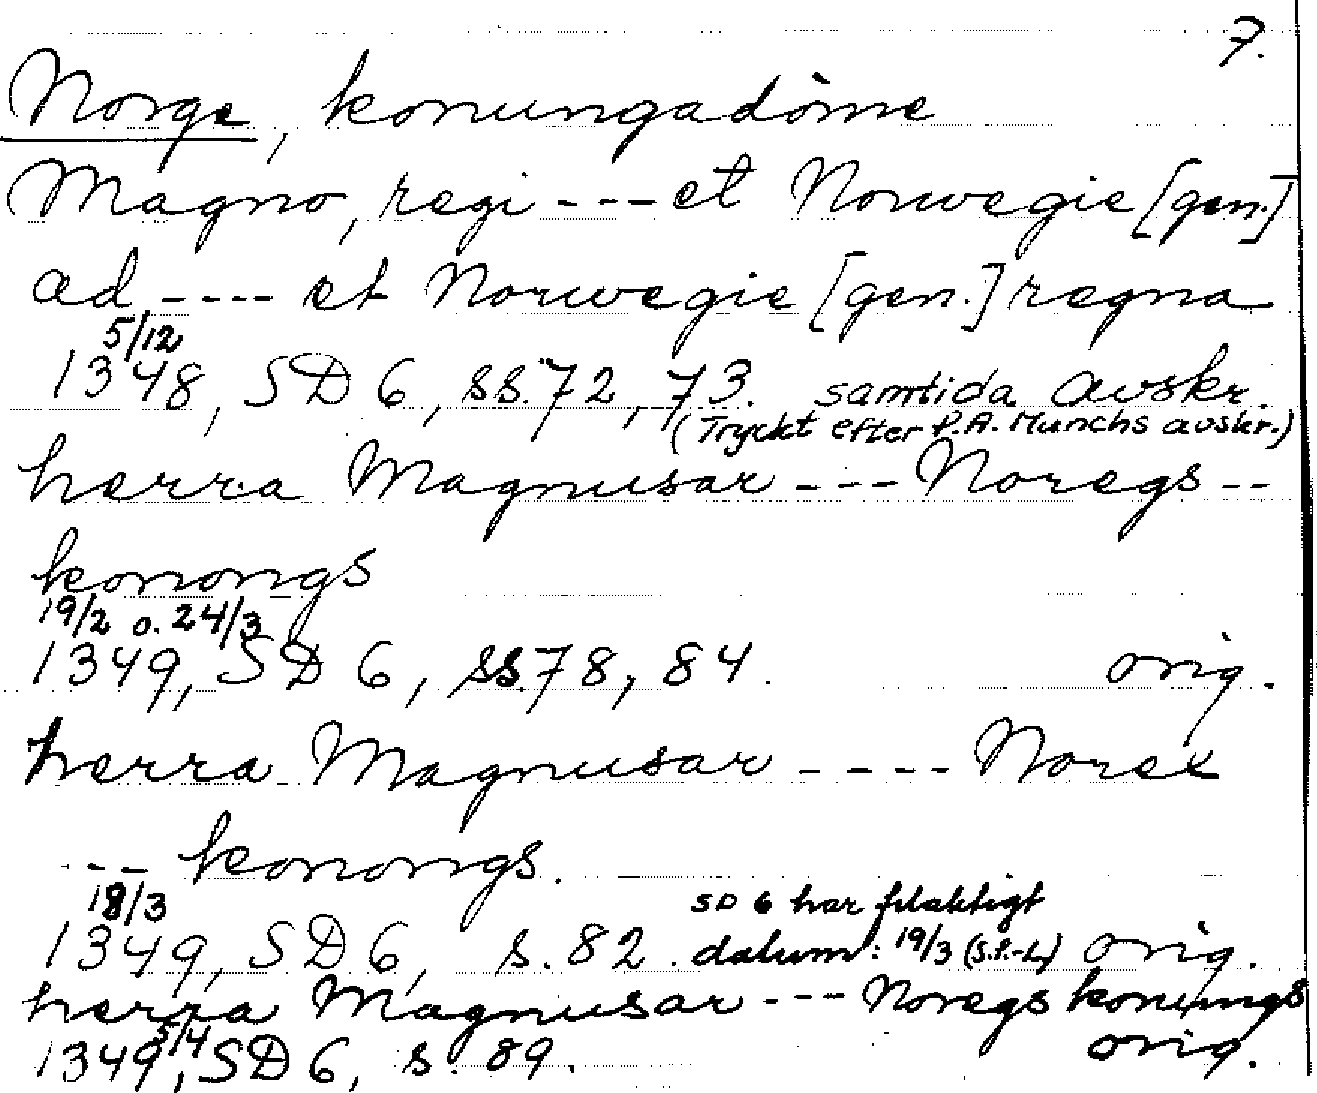 7.
Norge, konungadöme
Magno, regi --- et Norwegie [gen.]
ad ---- et Norwegie [gen.] regna
5/12
1348, SD 6, ss. 72, 73. samtida avskr.
(Tryckt efter P.A. Munchs avskr.)
herra Magnusar --- Noregs --
konongs
19/2 o. 24/3
1349, SD 6, ss. 78, 84. orig.
herra Magnusar ---- Norex
--- konongs.
18/3 SD 6 har felaktigt
1349, SD 6, s. 82. datum: 19/3 (S.F.-L) orig.
herra Magnusar --- Noregs konungs
5/4 orig.
1349, SD 6, s. 89.